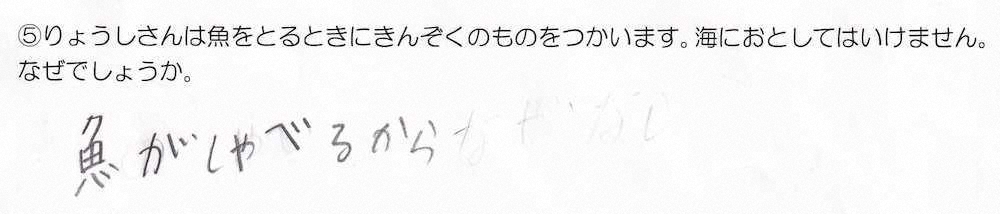 ⑤りょうしさんは魚をとるときにきんぞくのものをつかいます。海におとしてはいけません。
なぜでしょうか。
魚がしゃべるから